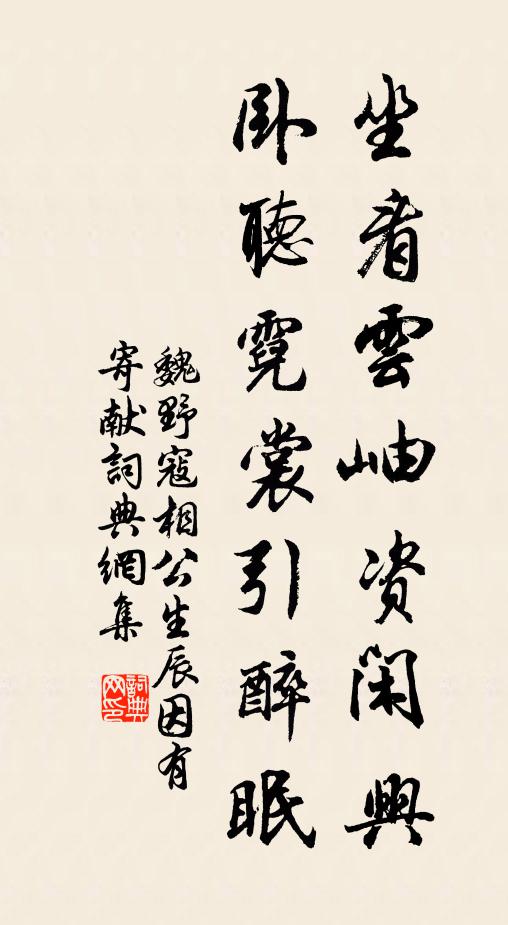 坐看雲岫資閑興
卧聽霓裳引醉眠
魏野寇相公生辰因有
寄獻詞典網集
詞典網印